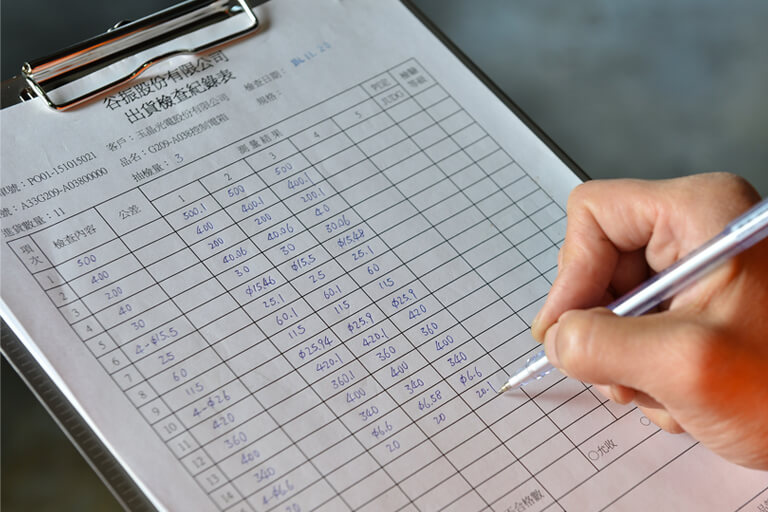 谷振股份有限公司
出貨檢查紀錄表
單號：PO01-151015021 客戶：玉晶光電股份有限公司 檢查日期：
號：A33G209-A03800000 品名：G209-A038控制電箱 規格：
進貨數量：11 抽檢量：3 測量結果
項次 檢查內容 公差 1 2 3 4 5 判定 JUDG 檢驗等級
1 500 500.1 500 500
2 400 400 400.1 400.1
3 200 200 200 200.1
4 40 40.06 40.06 40
5 30 30 30 30.06
6 4-φ15.5 φ15.46 φ15.5 φ15.48
7 25 25.1 25 25.1
8 60 60.1 60.1 60
9 115 115 115 115
10 4-φ26 φ25.94 φ25.9 φ25.9
11 420 420.1 420.1 420
12 360 360.1 360 360
13 400 400 400 400
14 340 340 340 340
4-φ6.6 φ6.6 φ6.58 φ6.6
20 20 20 20.1
不合格數 ○允收